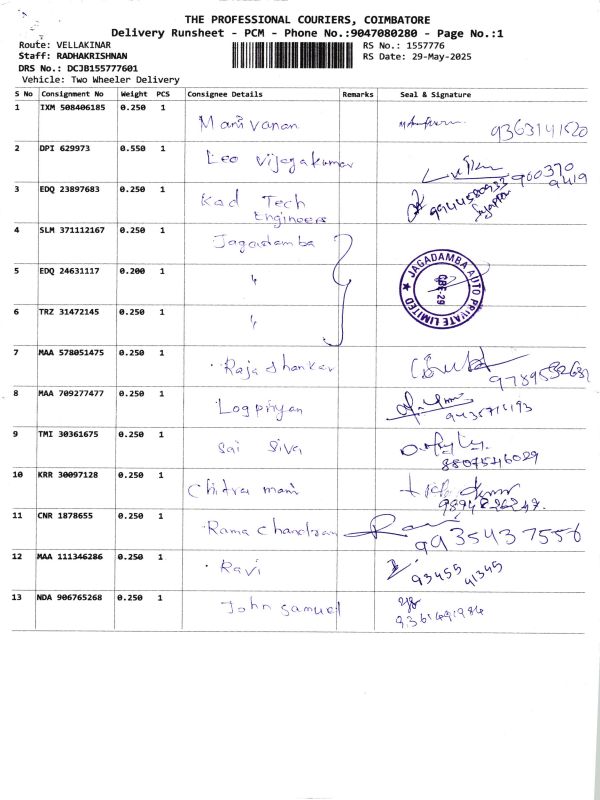 THE PROFESSIONAL COURIERS, COIMBATORE
Delivery Runsheet - PCM - Phone No.:9047080280 - Page No.:1
Route: VELLAKINAR
RS No.: 1557776
Staff: RADHAKRISHNAN
RS Date: 29-May-2025
DRS No.: DCJB155777601
Vehicle: Two Wheeler Delivery
S No Consignment No Weight PCS Consignee Details Remarks Seal & Signature
1 IXM 508406185 0.250 1 Manivanan 9363141520
2 DPI 629973 0.550 1 Leo Vijayakumar 900370
9419
3 EDQ 23897683 0.250 1 Kad Tech 9944580933
Engineers
4 SLM 371112167 0.250 1 Jagadamba
JAGADAMBA AUTO PRIVATE LIMITED
CBE-29
5 EDQ 24631117 0.200 1 "
6 TRZ 31472145 0.250 1 "
7 MAA 578051475 0.250 1 Raja Shankar
8 MAA 709277477 0.250 1 Logpriyan
9 TMI 30361675 0.250 1 Sai Siva 8807546029
10 KRR 30097128 0.250 1 Chitra mani
11 CNR 1878655 0.250 1 Rama Chandran 9935437556
12 MAA 111346286 0.250 1 Ravi 93455 41345
13 NDA 906765268 0.250 1 John Samuel